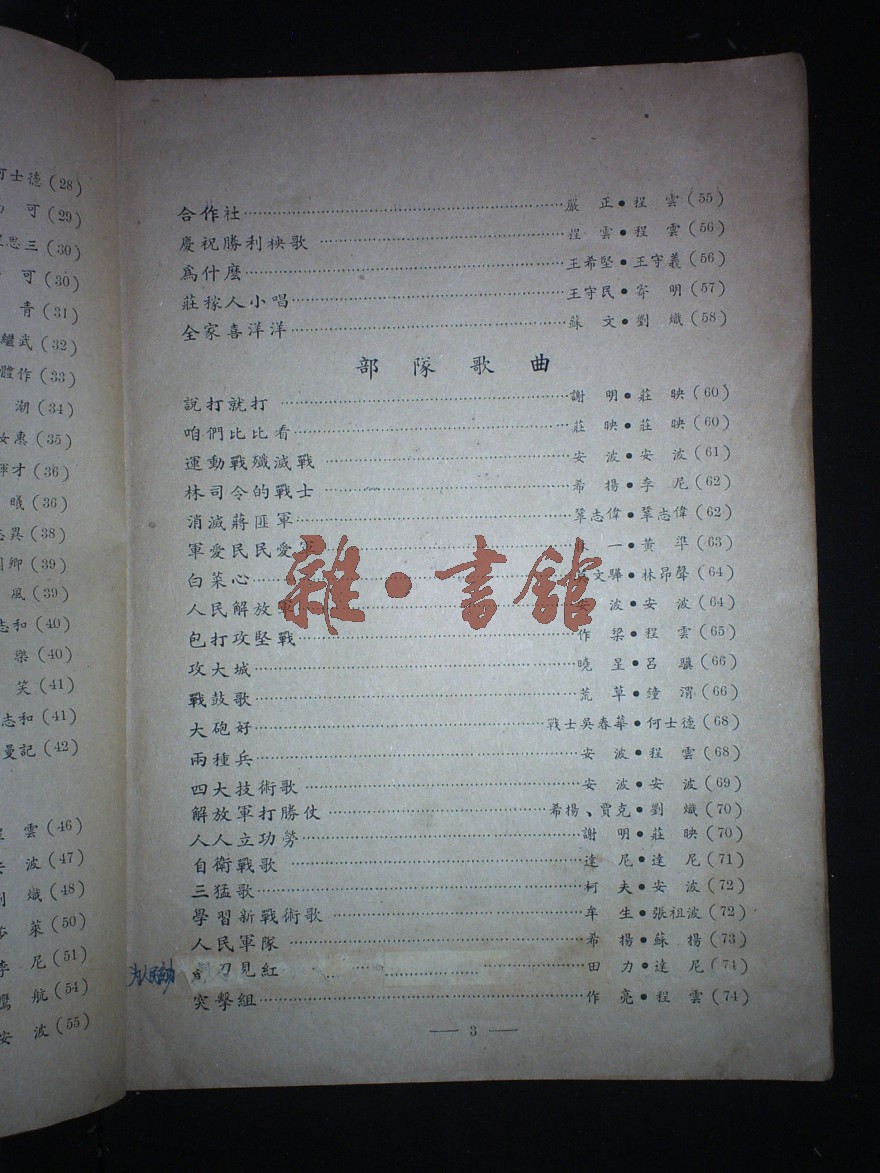 士德(28)
可(29)
思三(30)
可(30)
青(31)
繼武(32)
體作(33)
潮(34)
女惠(35)
才(36)
曦(36)
志異(38)
卿(39)
風(39)
志和(40)
樂(40)
笑(41)
志和(41)
曼記(42)
雲(46)
波(47)
熾(48)
萊(50)
李尼(51)
航(54)
安波(55)
合作社……嚴正•程雲(55)
慶祝勝利秧歌……程雲•程雲(56)
爲什麼……王希堅•王守義(56)
莊稼人小唱……王守民•寄明(57)
全家喜洋洋……蘇文•劉熾(58)
部隊歌曲
說打就打……謝明•莊映(60)
咱們比比看……莊映•莊映(60)
運動戰殲滅戰……安波•安波(61)
林司令的戰士……希揚•李尼(62)
消滅蔣匪軍……志偉•志偉(62)
軍愛民民愛軍……一•黃準(63)
白菜心……文驊•林昂聲(64)
人民解放軍……安波•安波(64)
包打攻堅戰……作梁•程雲(65)
攻大城……曉星•呂驥(66)
戰鼓歌……荒草•鐘渭(66)
大砲好……戰士吳春華•何士德(68)
兩種兵……安波•程雲(68)
四大技術歌……安波•安波(69)
解放軍打勝仗……希揚、賈克•劉熾(70)
人人立功勞……謝明•莊映(70)
自衛戰歌……達尼•達尼(71)
三猛歌……柯夫•安波(72)
學習新戰術歌……牟生•張祖波(72)
人民軍隊……希揚•蘇揚(73)
刀見紅……田力•達尼(74)
突擊組……作亮•程雲(74)
— 3 —
雜•書館